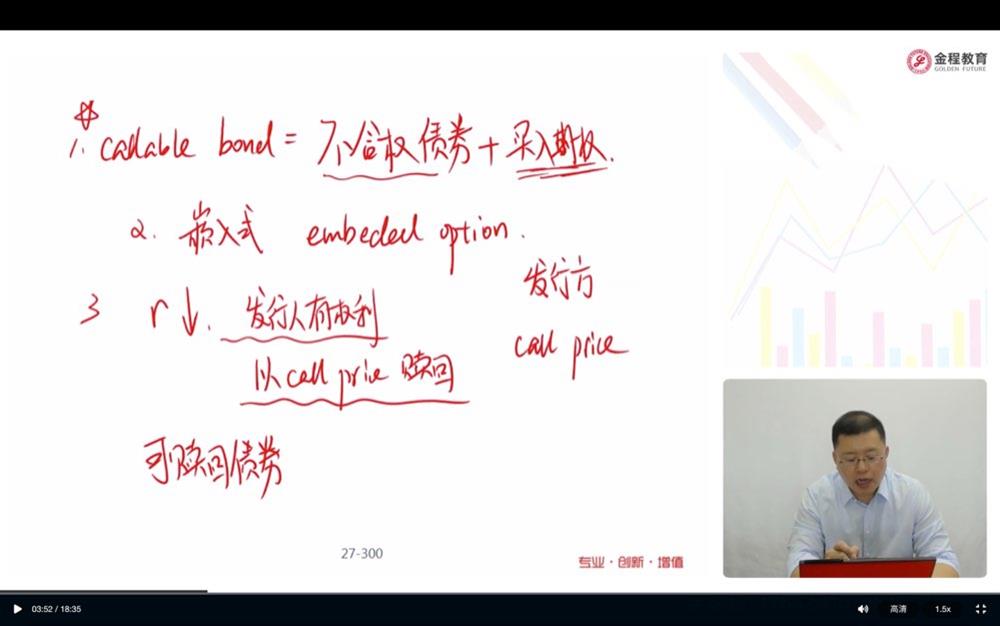 金程教育
GOLDEN FUTURE
1. callable bond = 不含权债券 + 买入期权.
2. 嵌入式 embeded option.
发行方
3 r↓. 发行人有权利
call price
以 call price 赎回
可赎回债券
27-300
专业·创新·增值
03:52 / 18:35
高清
1.5x